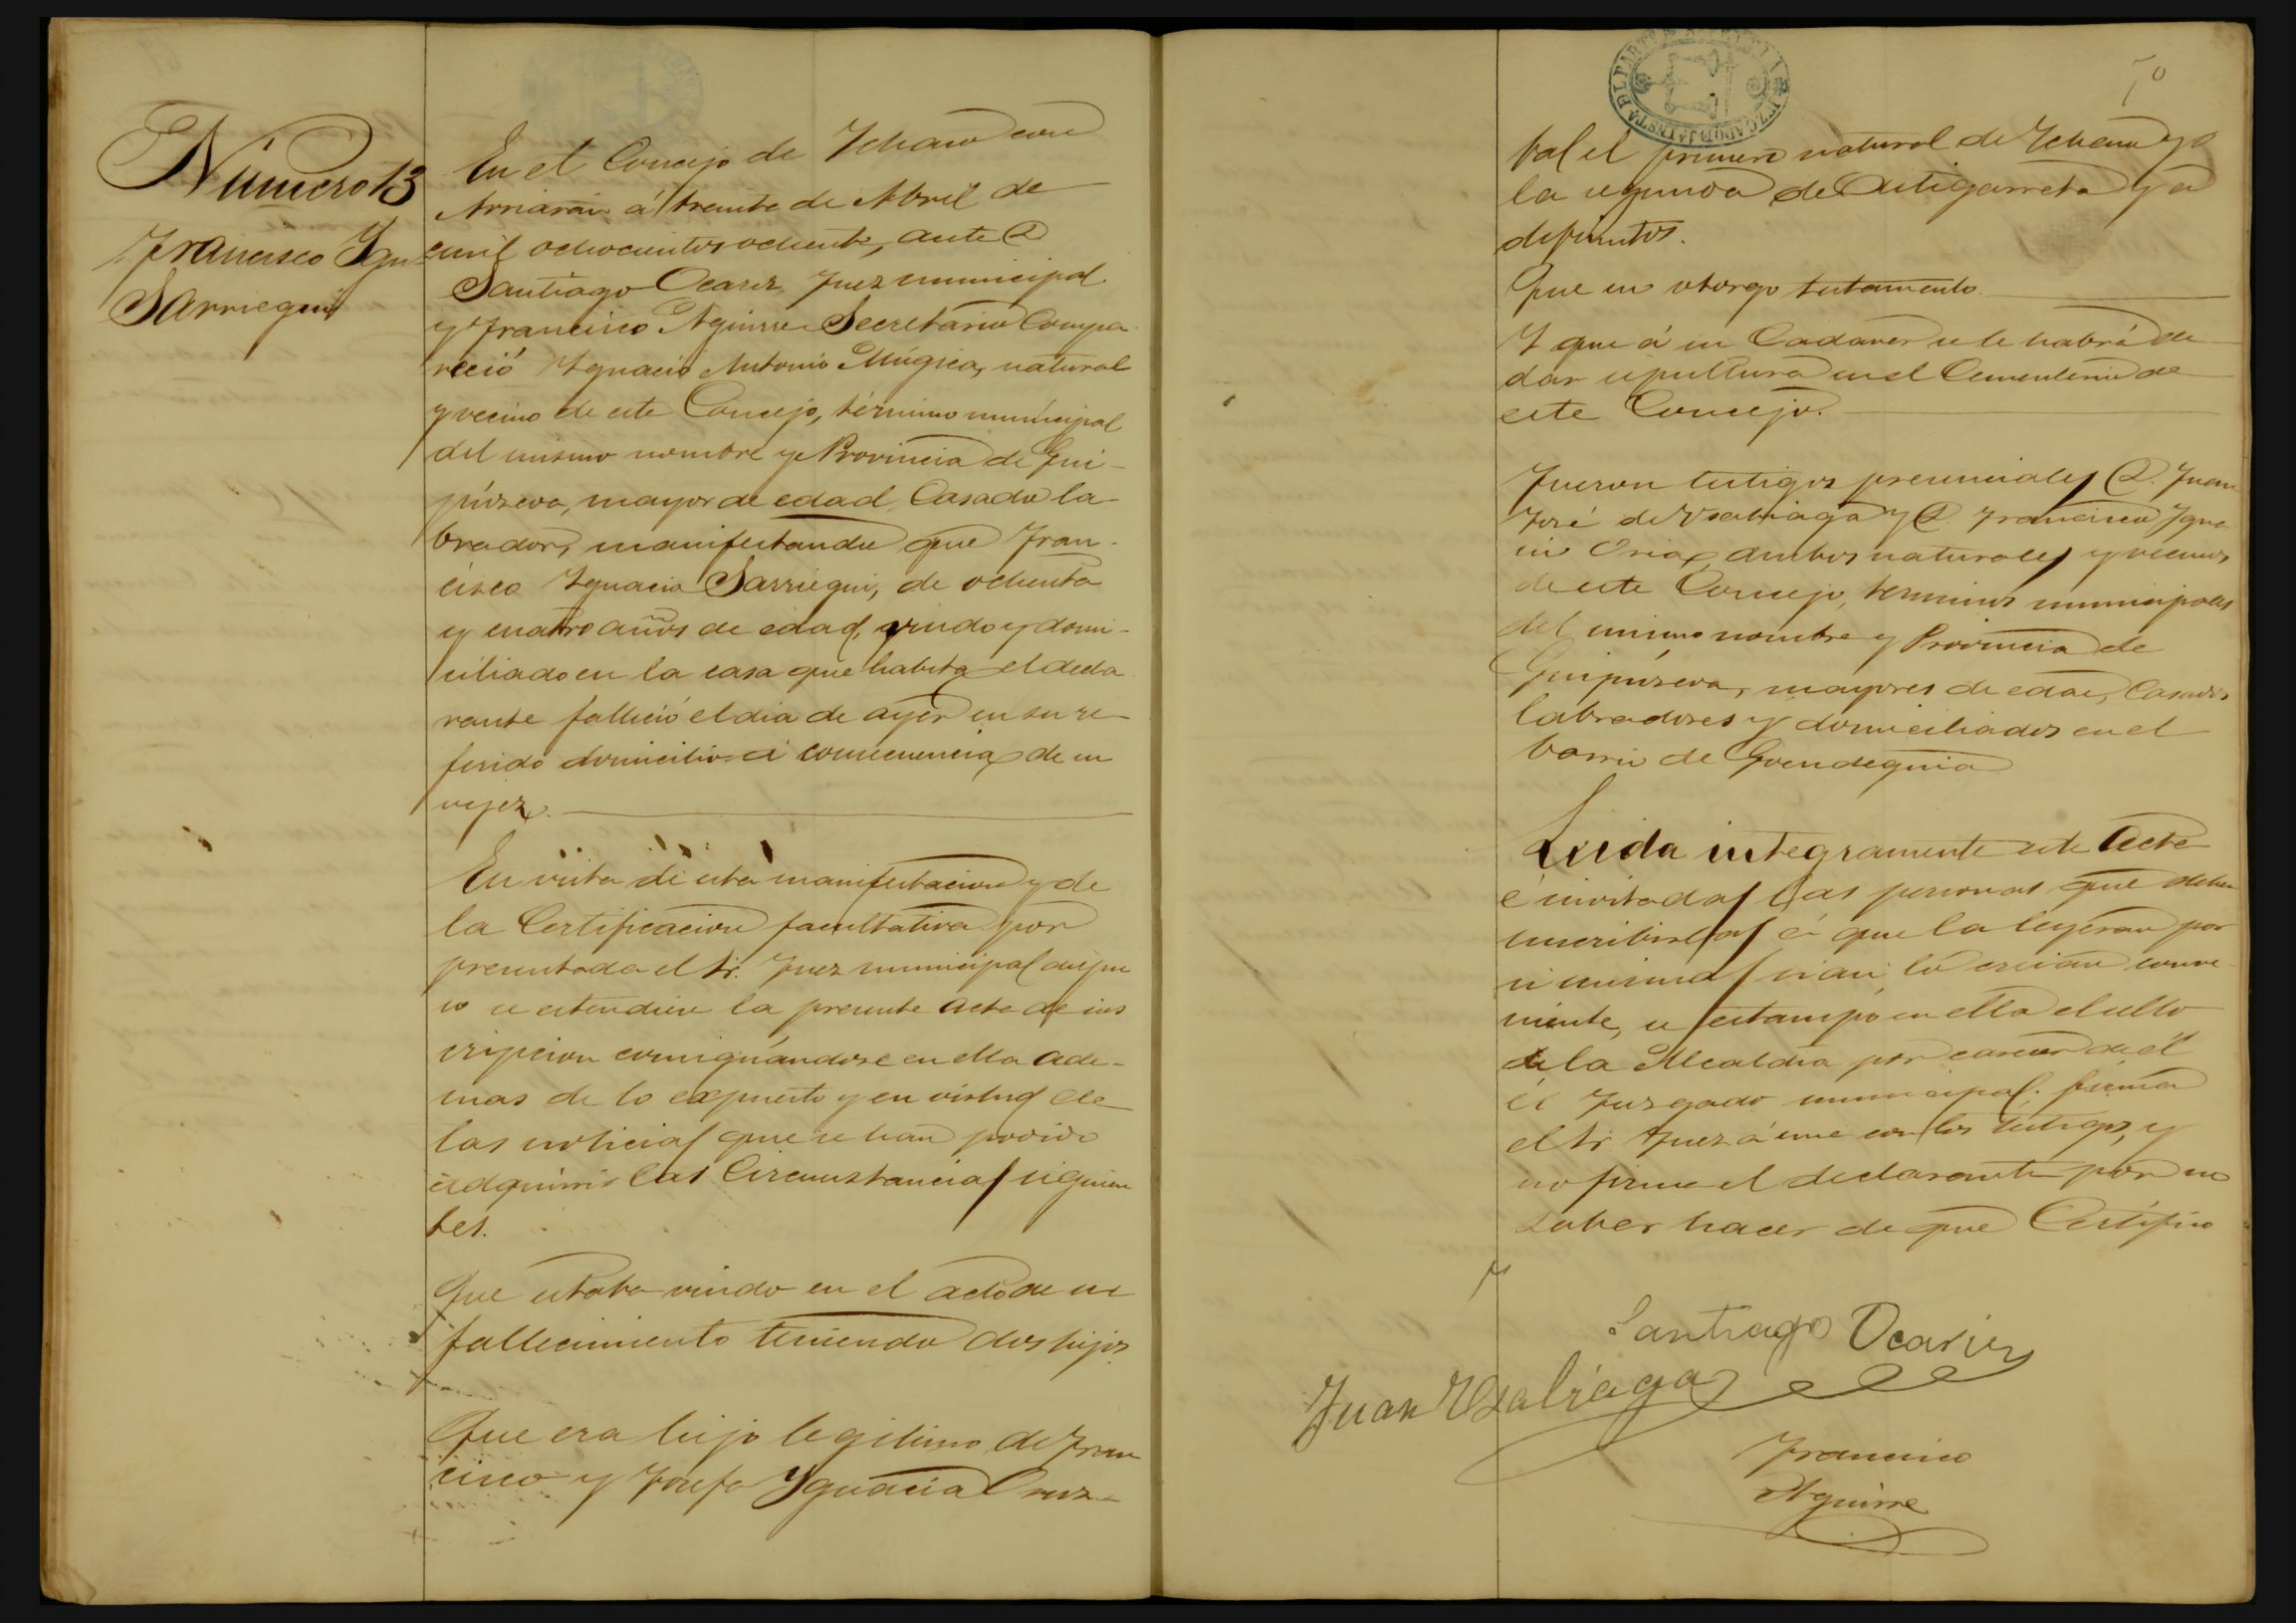 Número 13
Francisco Ygn
Sarriegui
En el Concejo de Ychaso con
Arriaran á treinta de Abril de
mil ochocientos ochenta, ante D
Santiago Ocariz, Juez municipal
y Francisco Aguirre Secretario Compa
reció Ygnacio Antonio Múgica, natural
y vecino de este Concejo, término municipal
del mismo nombre y Provincia de Gui-
púzcoa, mayor de edad, Casado la-
brador, manifestando que Fran-
cisco Ygnacio Sarriegui, de ochenta
y cuatro años de edad, viudo y domi-
ciliado en la casa que habita el decla
rante falleció el dia de ayer en su re-
ferido domicilio á consecuencia de su
vejez.
En vista de esta manifestacion y de
la Certificacion facultativa por
presentada el Sr. Juez municipal dispu
so se estendiere la presente acta de ins
cripcion consignándose en ella ade-
mas de lo expuesto y en virtud de
las noticias que se han podido
adquirir las Circunstancias siguien
tes.
Que estaba viudo en el acto de su
fallecimiento teniendo dos hijos
Que era hijo legitimo de Fran
cisco y Josefa Ygnacia
bal el primero natural de Ychaso y
la segunda de Astigarreta ya
difuntos.
Que no otorgo testamento.
Y que á su Cadaver se le habrá de
dar sepultura en el Cementerio de
este Concejo.
Fueron testigos presenciales D. Juan
José de Usabiaga y D Francisco Ygna
cio Oria, ambos naturales y vecinos
de este Concejo, terminos municipales
del mismo nombre y Provincia de
Guipúzcoa, mayores de edad, Casados
labradores y domiciliados en el
barrio de
Leida integramente este Acta
é invitadas las personas que deben
suscribirlas á que la leyeran por
si mismas si asi lo creian conve
niente, se estampó en ella el sello
de la Alcaldia por carecer de él
el Juzgado municipal. firma
el Sr Juez á una con los testigos, y
no firma el declarante por no
saber hacer de que Certifico
Santiago Ocariz
Juan Usabiaga
Francisco
Aguirre